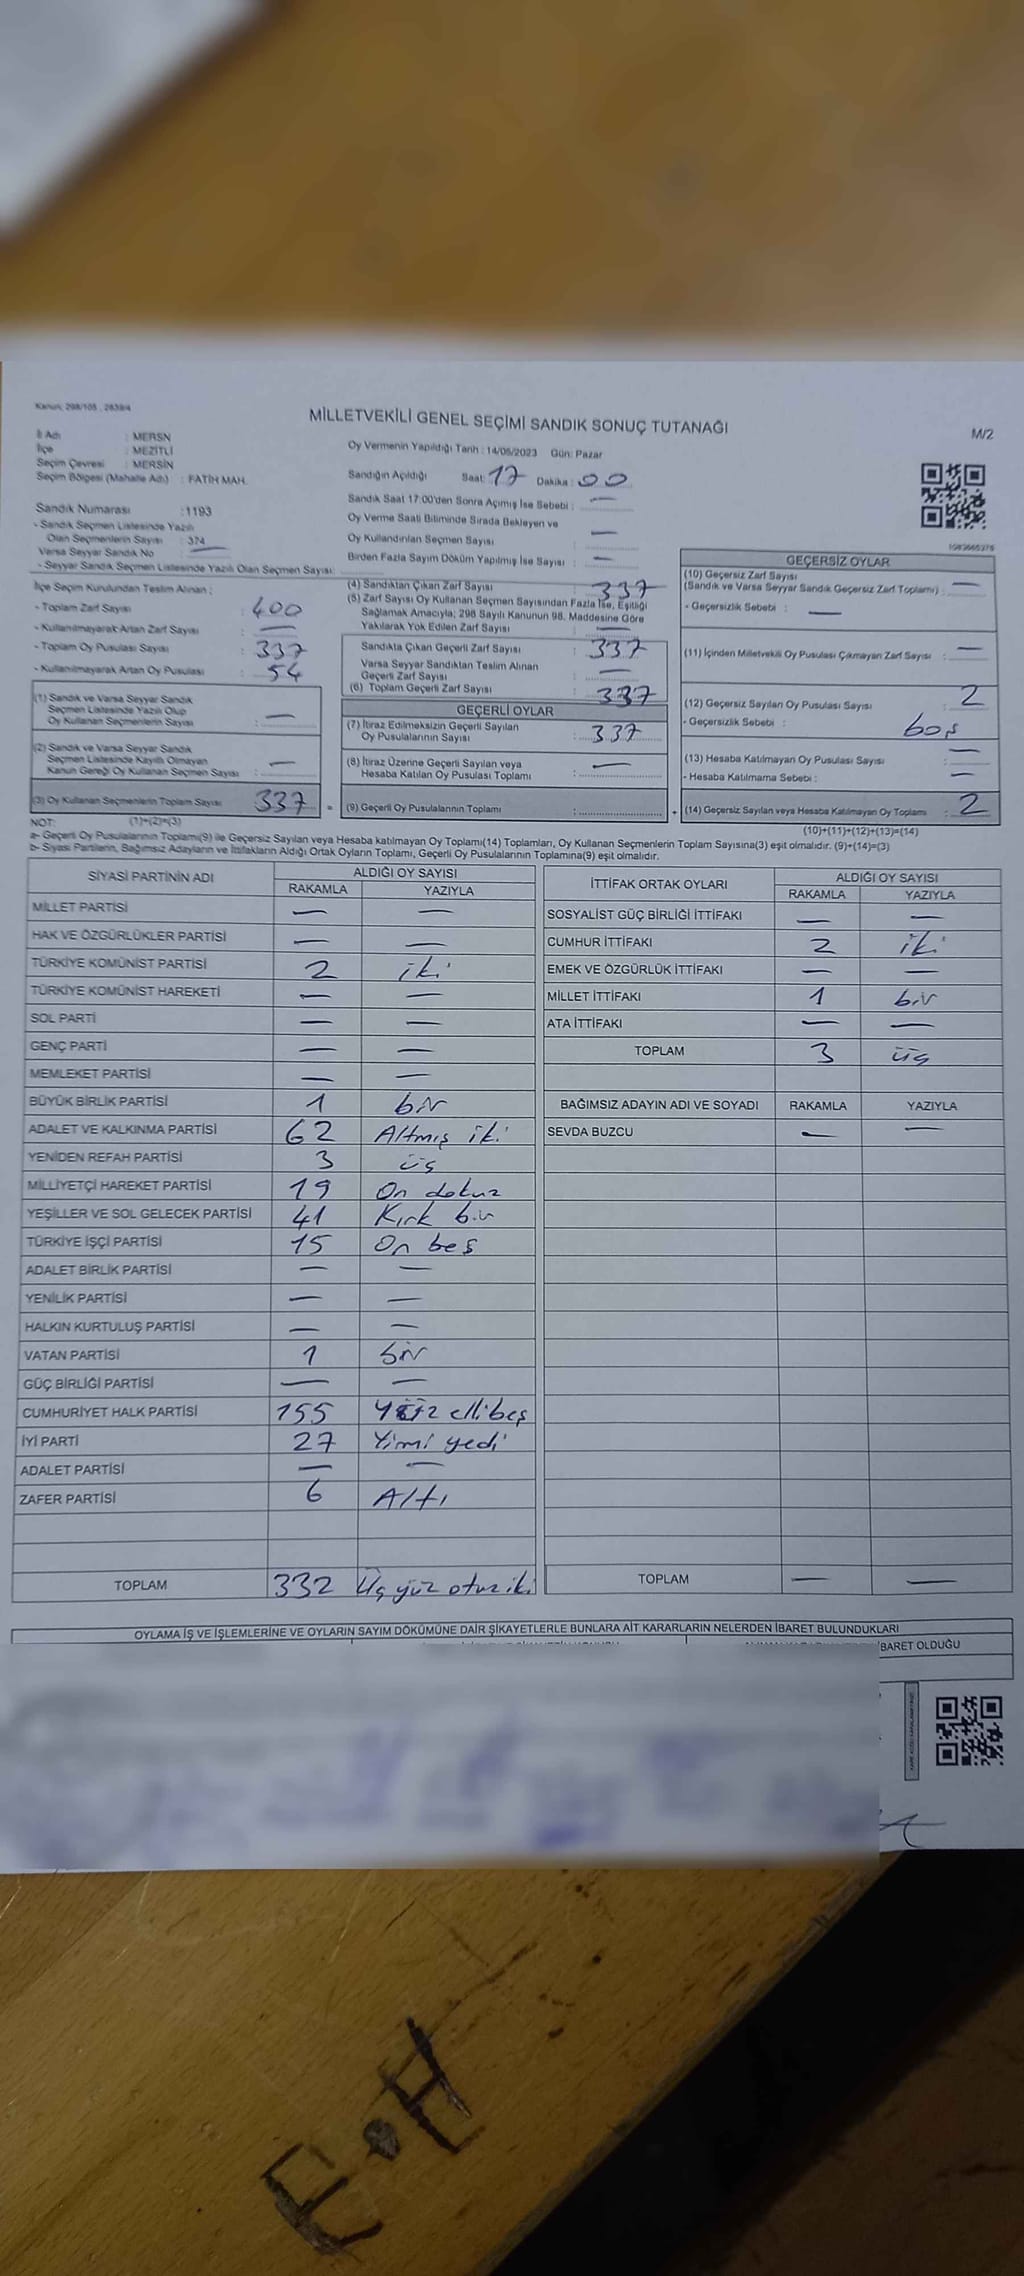 Kanun: 298/105 , 2839/4
MİLLETVEKİLİ GENEL SEÇİMİ SANDIK SONUÇ TUTANAĞI
M/2
İl Adı : MERSN
İlçe : MEZİTLİ
Seçim Çevresi : MERSİN
Seçim Bölgesi (Mahalle Adı) : FATİH MAH.
Oy Vermenin Yapıldığı Tarih : 14/05/2023 Gün: Pazar
Sandığın Açıldığı Saat: 17 Dakika : 00
Sandık Saat 17:00'den Sonra Açımış İse Sebebi : —
Oy Verme Saati Bitiminde Sırada Bekleyen ve
Oy Kullandırılan Seçmen Sayısı : —
Birden Fazla Sayım Döküm Yapılmış İse Sayısı : —
Sandık Numarası :1193
- Sandık Seçmen Listesinde Yazılı
Olan Seçmenlerin Sayısı : 374
Varsa Seyyar Sandık No —
- Seyyar Sandık Seçmen Listesinde Yazılı Olan Seçmen Sayısı:
İlçe Seçim Kurulundan Teslim Alınan :
- Toplam Zarf Sayısı : 400
- Kullanılmayarak Artan Zarf Sayısı : —
- Toplam Oy Pusulası Sayısı : 337
- Kullanılmayarak Artan Oy Pusulası : 54
(1) Sandık ve Varsa Seyyar Sandık
Seçmen Listesinde Yazılı Olup
Oy Kullanan Seçmenlerin Sayısı : —
(2) Sandık ve Varsa Seyyar Sandık
Seçmen Listesinde Kayıtlı Olmayan
Kanun Gereği Oy Kullanan Seçmen Sayısı : —
(3) Oy Kullanan Seçmenlerin Toplam Sayısı 337
(1)+(2)=(3)
(4) Sandıktan Çıkan Zarf Sayısı : 337
(5) Zarf Sayısı Oy Kullanan Seçmen Sayısından Fazla İse, Eşitliği
Sağlamak Amacıyla; 298 Sayılı Kanunun 98. Maddesine Göre
Yakılarak Yok Edilen Zarf Sayısı : —
Sandıkta Çıkan Geçerli Zarf Sayısı : 337
Varsa Seyyar Sandıktan Teslim Alınan
Geçerli Zarf Sayısı : —
(6) Toplam Geçerli Zarf Sayısı : 337
GEÇERLİ OYLAR
(7) İtiraz Edilmeksizin Geçerli Sayılan
Oy Pusulalarının Sayısı : 337
(8) İtiraz Üzerine Geçerli Sayılan veya
Hesaba Katılan Oy Pusulası Toplamı : —
= (9) Geçerli Oy Pusulalarının Toplamı :
GEÇERSİZ OYLAR
(10) Geçersiz Zarf Sayısı
(Sandık ve Varsa Seyyar Sandık Geçersiz Zarf Toplamı) : —
- Geçersizlik Sebebi : —
(11) İçinden Milletvekili Oy Pusulası Çıkmayan Zarf Sayısı : —
(12) Geçersiz Sayılan Oy Pusulası Sayısı : 2
- Geçersizlik Sebebi : boş
(13) Hesaba Katılmayan Oy Pusulası Sayısı : —
- Hesaba Katılmama Sebebi : —
+ (14) Geçersiz Sayılan veya Hesaba Katılmayan Oy Toplamı : 2
(10)+(11)+(12)+(13)=(14)
NOT:
a- Geçerli Oy Pusulalarının Toplamı(9) ile Geçersiz Sayılan veya Hesaba katılmayan Oy Toplamı(14) Toplamları, Oy Kullanan Seçmenlerin Toplam Sayısına(3) eşit olmalıdır. (9)+(14)=(3)
b- Siyasi Partilerin, Bağımsız Adayların ve İttifakların Aldığı Ortak Oyların Toplamı, Geçerli Oy Pusulalarının Toplamına(9) eşit olmalıdır.
SİYASİ PARTİNİN ADI ALDIĞI OY SAYISI
RAKAMLA YAZIYLA
MİLLET PARTİSİ — —
HAK VE ÖZGÜRLÜKLER PARTİSİ — —
TÜRKİYE KOMÜNİST PARTİSİ 2 iki
TÜRKİYE KOMÜNİST HAREKETİ — —
SOL PARTİ — —
GENÇ PARTİ — —
MEMLEKET PARTİSİ — —
BÜYÜK BİRLİK PARTİSİ 1 bir
ADALET VE KALKINMA PARTİSİ 62 Altmış iki
YENİDEN REFAH PARTİSİ 3 üç
MİLLİYETÇİ HAREKET PARTİSİ 19 On dokuz
YEŞİLLER VE SOL GELECEK PARTİSİ 41 Kırk bir
TÜRKİYE İŞÇİ PARTİSİ 15 On beş
ADALET BİRLİK PARTİSİ — —
YENİLİK PARTİSİ — —
HALKIN KURTULUŞ PARTİSİ — —
VATAN PARTİSİ 1 bir
GÜÇ BİRLİĞİ PARTİSİ — —
CUMHURİYET HALK PARTİSİ 155 Yüz ellibeş
İYİ PARTİ 27 Yimi yedi
ADALET PARTİSİ — —
ZAFER PARTİSİ 6 Altı
TOPLAM 332 Üç yüz otuz iki
İTTİFAK ORTAK OYLARI ALDIĞI OY SAYISI
RAKAMLA YAZIYLA
SOSYALİST GÜÇ BİRLİĞİ İTTİFAKI — —
CUMHUR İTTİFAKI 2 iki
EMEK VE ÖZGÜRLÜK İTTİFAKI — —
MİLLET İTTİFAKI 1 bir
ATA İTTİFAKI — —
TOPLAM 3 üç
BAĞIMSIZ ADAYIN ADI VE SOYADI RAKAMLA YAZIYLA
SEVDA BUZCU — —
TOPLAM — —
OYLAMA İŞ VE İŞLEMLERİNE VE OYLARIN SAYIM DÖKÜMÜNE DAİR ŞİKAYETLERLE BUNLARA AİT KARARLARIN NELERDEN İBARET BULUNDUKLARI
İBARET OLDUĞU
E.H